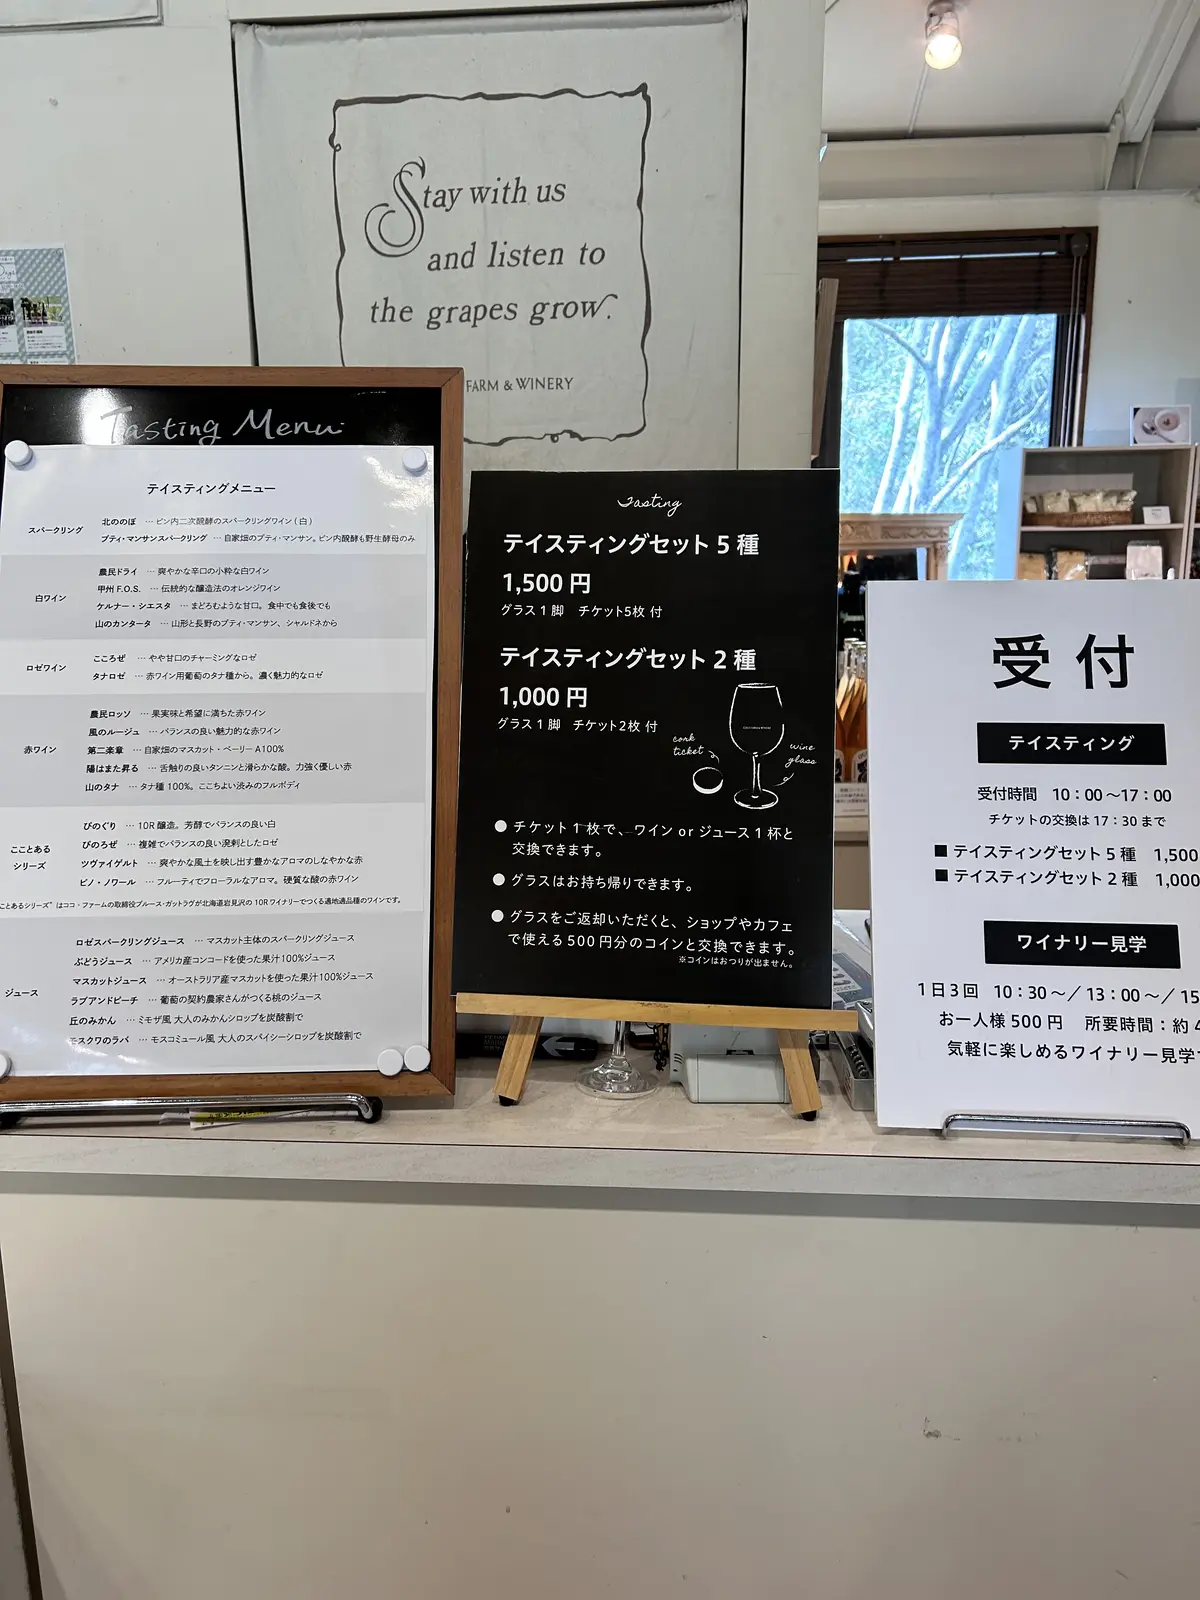 Stay with us
and listen to
the grapes grow.
FARM & WINERY
Tasting Menu
テイスティングメニュー
スパークリング
北ののぼ … ビン内二次醗酵のスパークリングワイン(白)
プティ・マンサンスパークリング … 自家畑のプティ・マンサン。ビン内醗酵も野生酵母のみ
白ワイン
農民ドライ … 爽やかな辛口の小粋な白ワイン
甲州 F.O.S. … 伝統的な醸造法のオレンジワイン
ケルナー・シエスタ … まどろむような甘口。食中でも食後でも
山のカンタータ … 山形と長野のプティ・マンサン、シャルドネから
ロゼワイン
こころぜ … やや甘口のチャーミングなロゼ
タナロゼ … 赤ワイン用葡萄のタナ種から。濃く魅力的なロゼ
赤ワイン
農民ロッソ … 果実味と希望に満ちた赤ワイン
風のルージュ … バランスの良い魅力的な赤ワイン
第二楽章 … 自家畑のマスカット・ベーリーA100%
陽はまた昇る … 舌触りの良いタンニンと滑らかな酸。力強く優しい赤
山のタナ … タナ種 100%。ここちよい渋みのフルボディ
こことある
シリーズ
ぴのぐり … 10R 醸造。芳醇でバランスの良い白
ぴのろぜ … 複雑でバランスの良い溌剌としたロゼ
ツヴァイゲルト … 爽やかな風土を映し出す豊かなアロマのしなやかな赤
ピノ・ノワール … フルーティでフローラルなアロマ。硬質な酸の赤ワイン
ことあるシリーズ"はココ・ファームの取締役ブルース・ガットラヴが北海道岩見沢の 10R ワイナリーでつくる適地適品種のワインです。
ジュース
ロゼスパークリングジュース … マスカット主体のスパークリングジュース
ぶどうジュース … アメリカ産コンコードを使った果汁100%ジュース
マスカットジュース … オーストラリア産マスカットを使った果汁100%ジュース
ラブアンドピーチ … 葡萄の契約農家さんがつくる桃のジュース
丘のみかん … ミモザ風 大人のみかんシロップを炭酸割で
モスクワのラバ … モスコミュール風 大人のスパイシーシロップを炭酸割で
Tasting
テイスティングセット 5 種
1,500 円
グラス 1 脚 チケット5枚 付
テイスティングセット 2 種
1,000 円
グラス 1 脚 チケット2枚 付
cork
ticket
wine
glass
● チケット 1 枚で、ワイン or ジュース 1 杯と
交換できます。
● グラスはお持ち帰りできます。
● グラスをご返却いただくと、ショップやカフェ
で使える 500 円分のコインと交換できます。
※コインはおつりが出ません。
受付
テイスティング
受付時間 10:00〜17:00
チケットの交換は 17:30 まで
■ テイスティングセット 5 種 1,500
■ テイスティングセット 2 種 1,000
ワイナリー見学
1日3回 10:30〜/ 13:00〜/ 15
お一人様 500 円 所要時間:約 4
気軽に楽しめるワイナリー見学